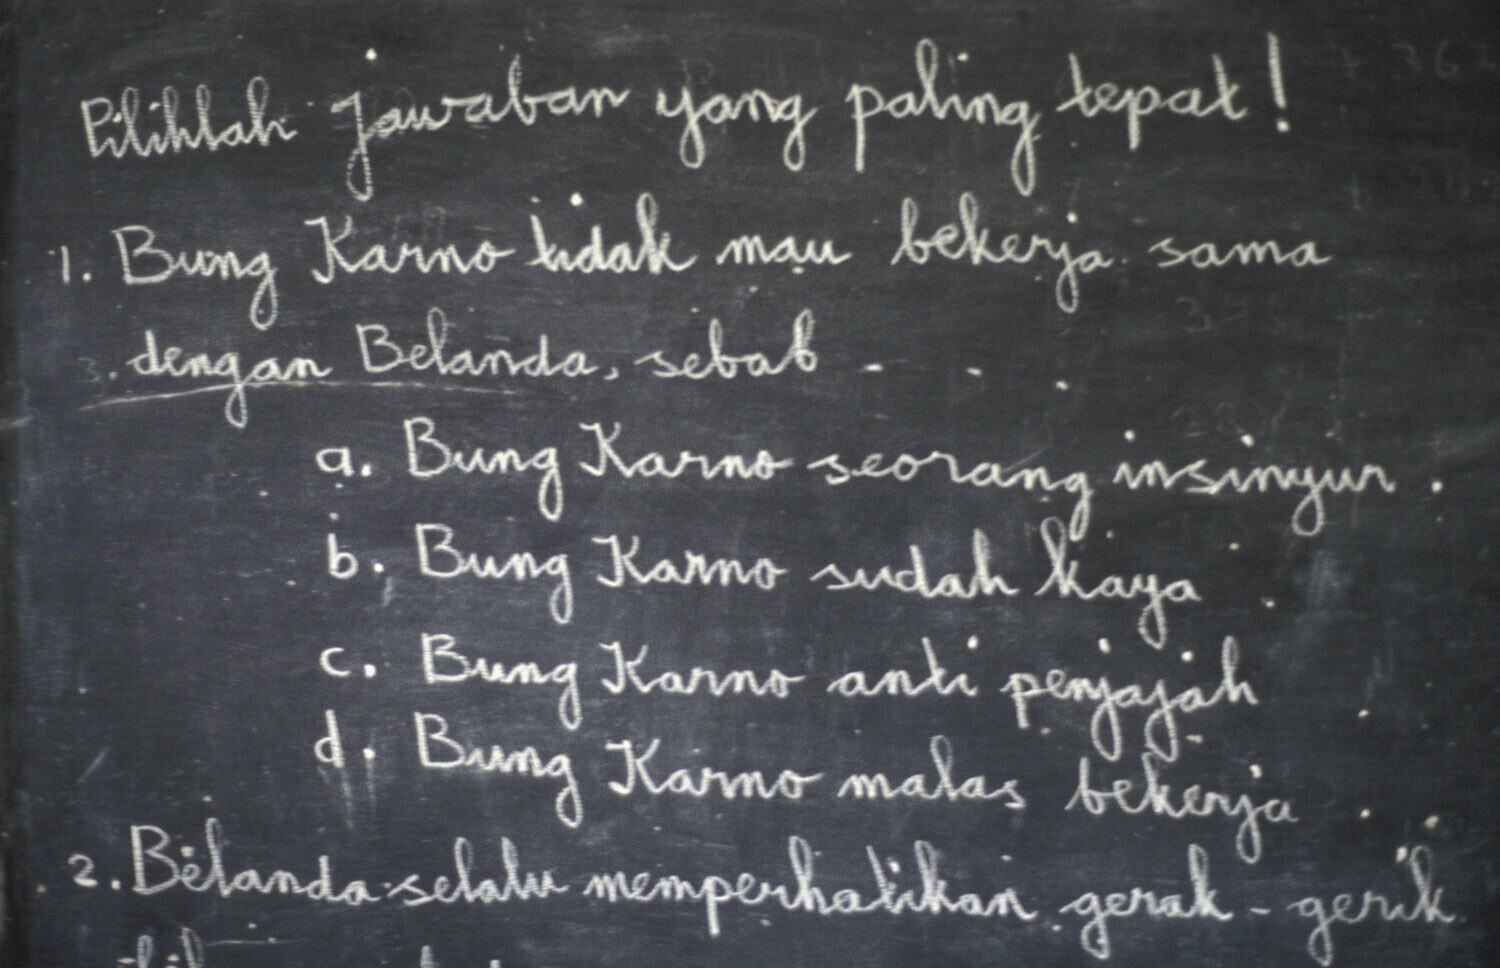 Pilihlah jawaban yang paling tepat!
1. Bung Karno tidak mau bekerja sama
dengan Belanda, sebab . . .
a. Bung Karno seorang insinyur.
b. Bung Karno sudah kaya
c. Bung Karno anti penjajah
d. Bung Karno malas bekerja
2. Belanda selalu memperhatikan gerak-gerik